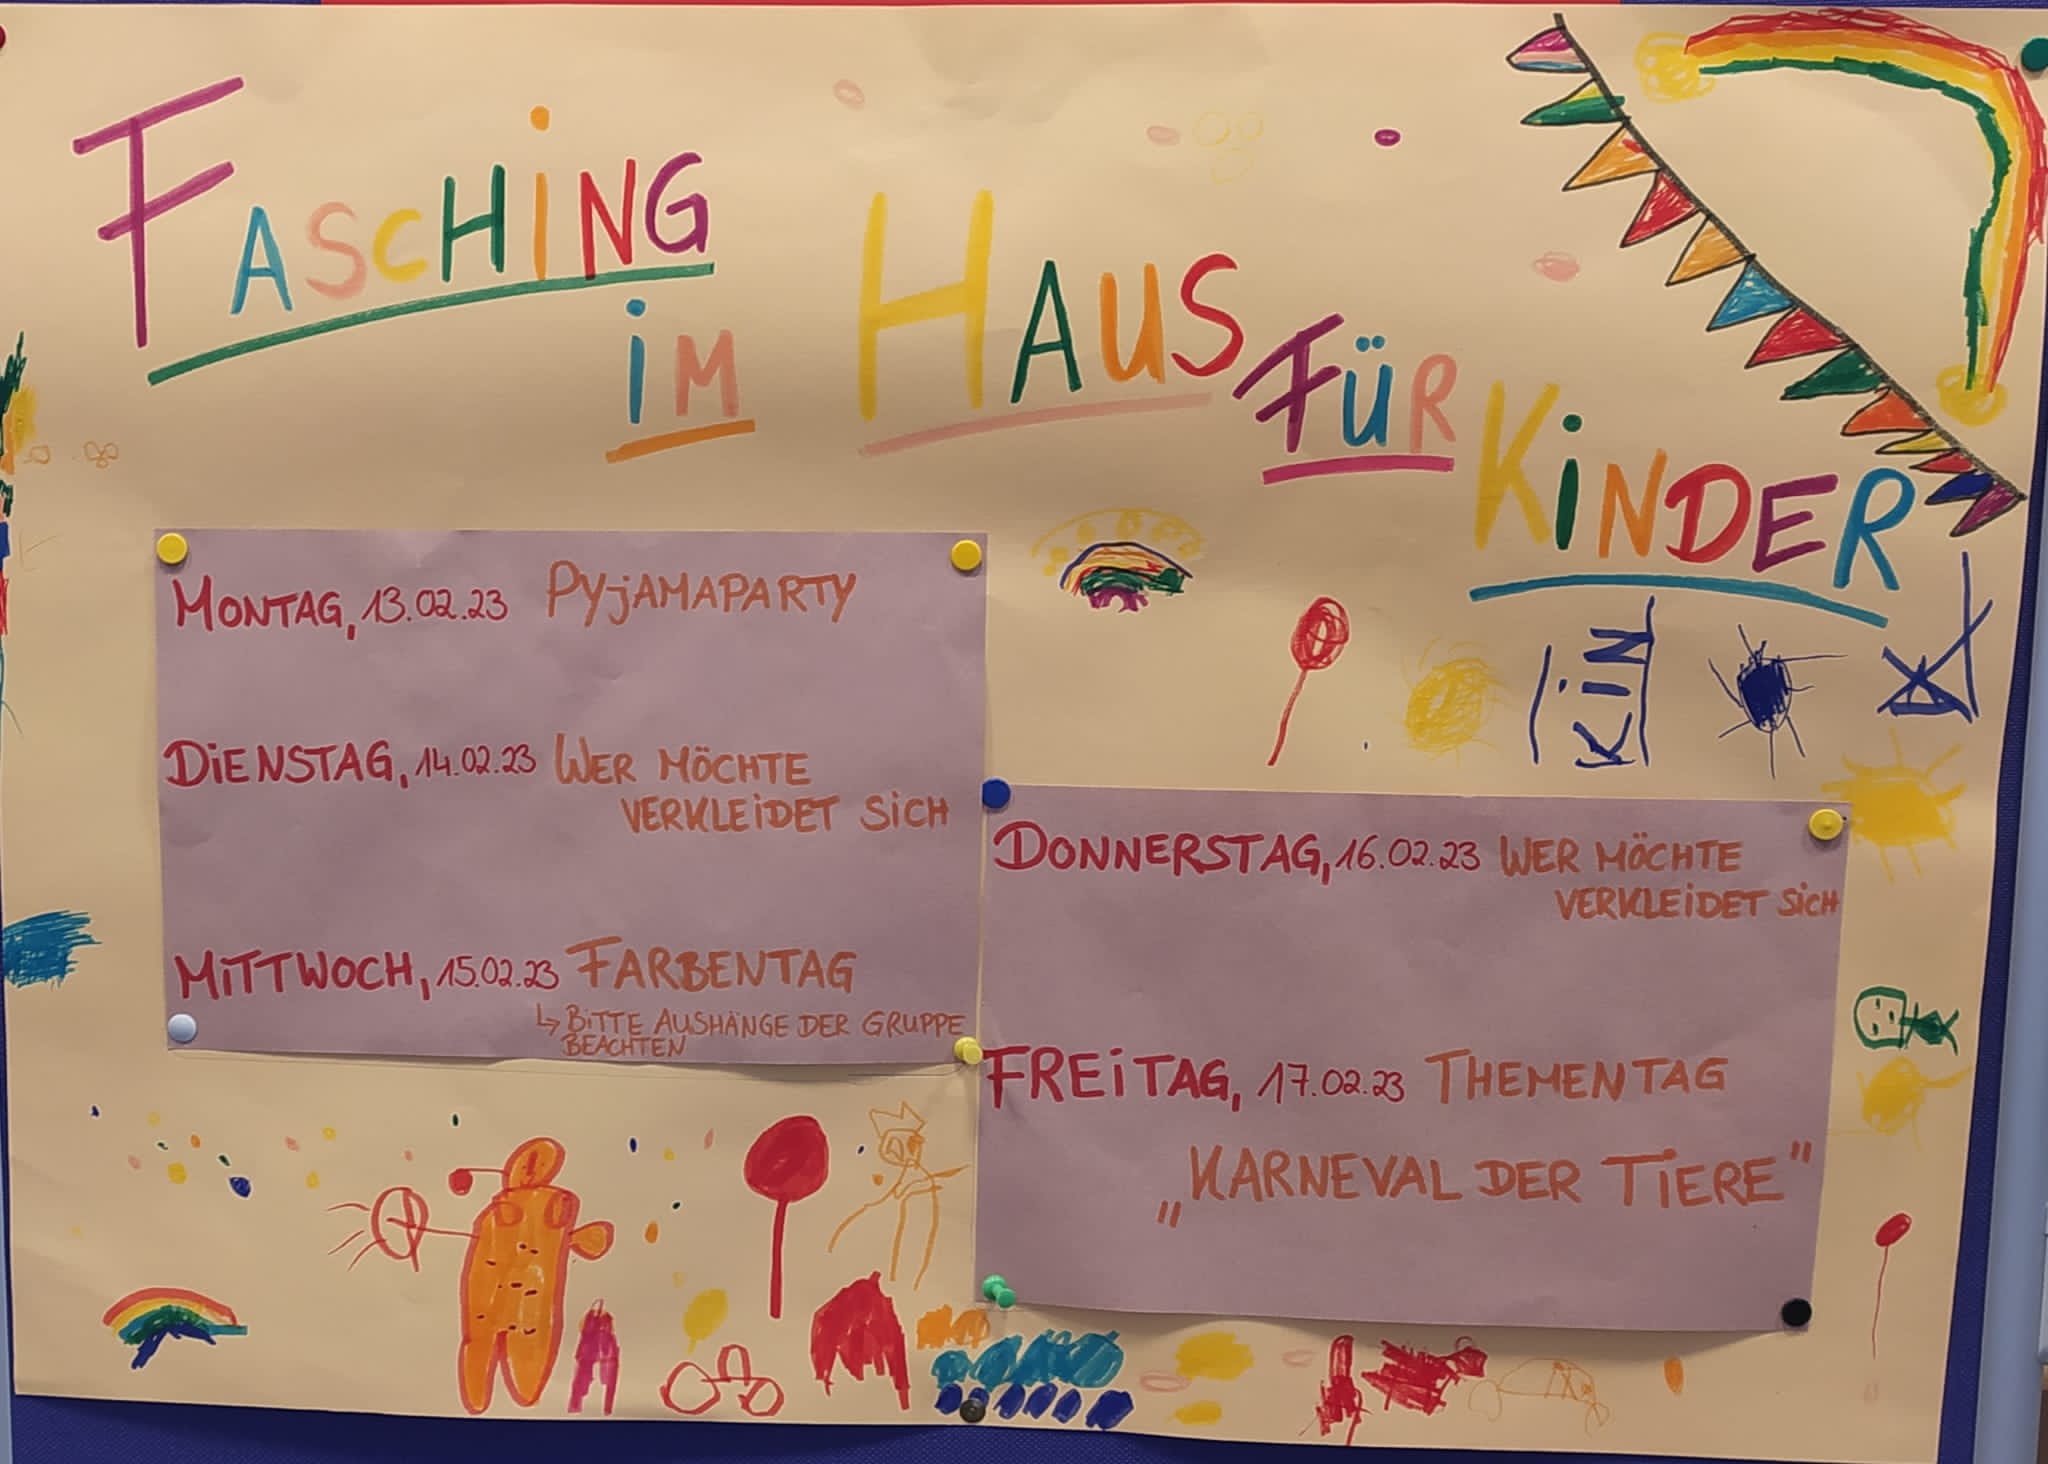 FASCHiNG
iM HAUS FÜR KiNDER
MONTAG, 13.02.23 PYjAMAPARTY
DiENSTAG, 14.02.23 WER MÖCHTE
VERKLEiDET SiCH
MiTTWOCH, 15.02.23 FARBENTAG
↳ BiTTE AUSHÄNGE DER GRUPPE
BEACHTEN
DONNERSTAG, 16.02.23 WER MÖCHTE
VERKLEiDET SiCH
FREiTAG, 17.02.23 THEMENTAG
„KARNEVAL DER TiERE"
KiN